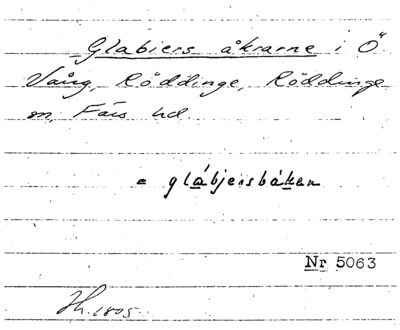 Glabiers åkrarne i Ö.
Vång, Röddinge, Röddinge
sn, Färs hd.
= glábjersbákan
Nr 5063
Jh. 1805